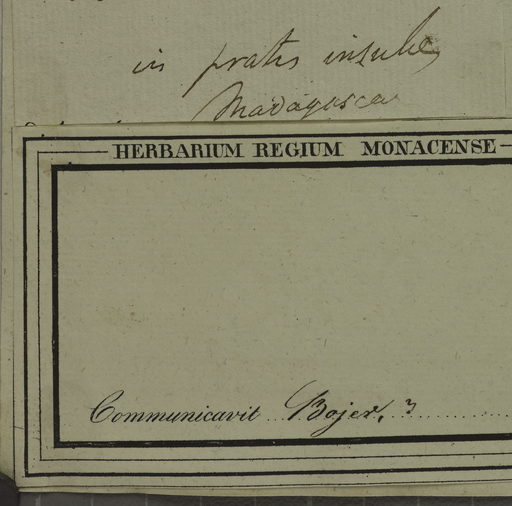 in pratis insulae
Madagascar
HERBARIUM REGIUM MONACENSE
Communicavit Bojer. ?